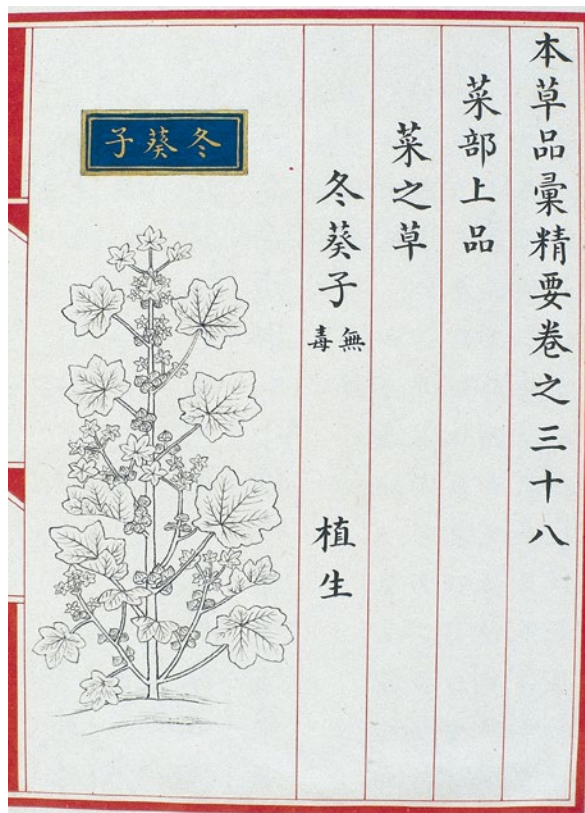 本草品彙精要卷之三十八
菜部上品
菜之草
冬葵子 無毒 植生
冬葵子